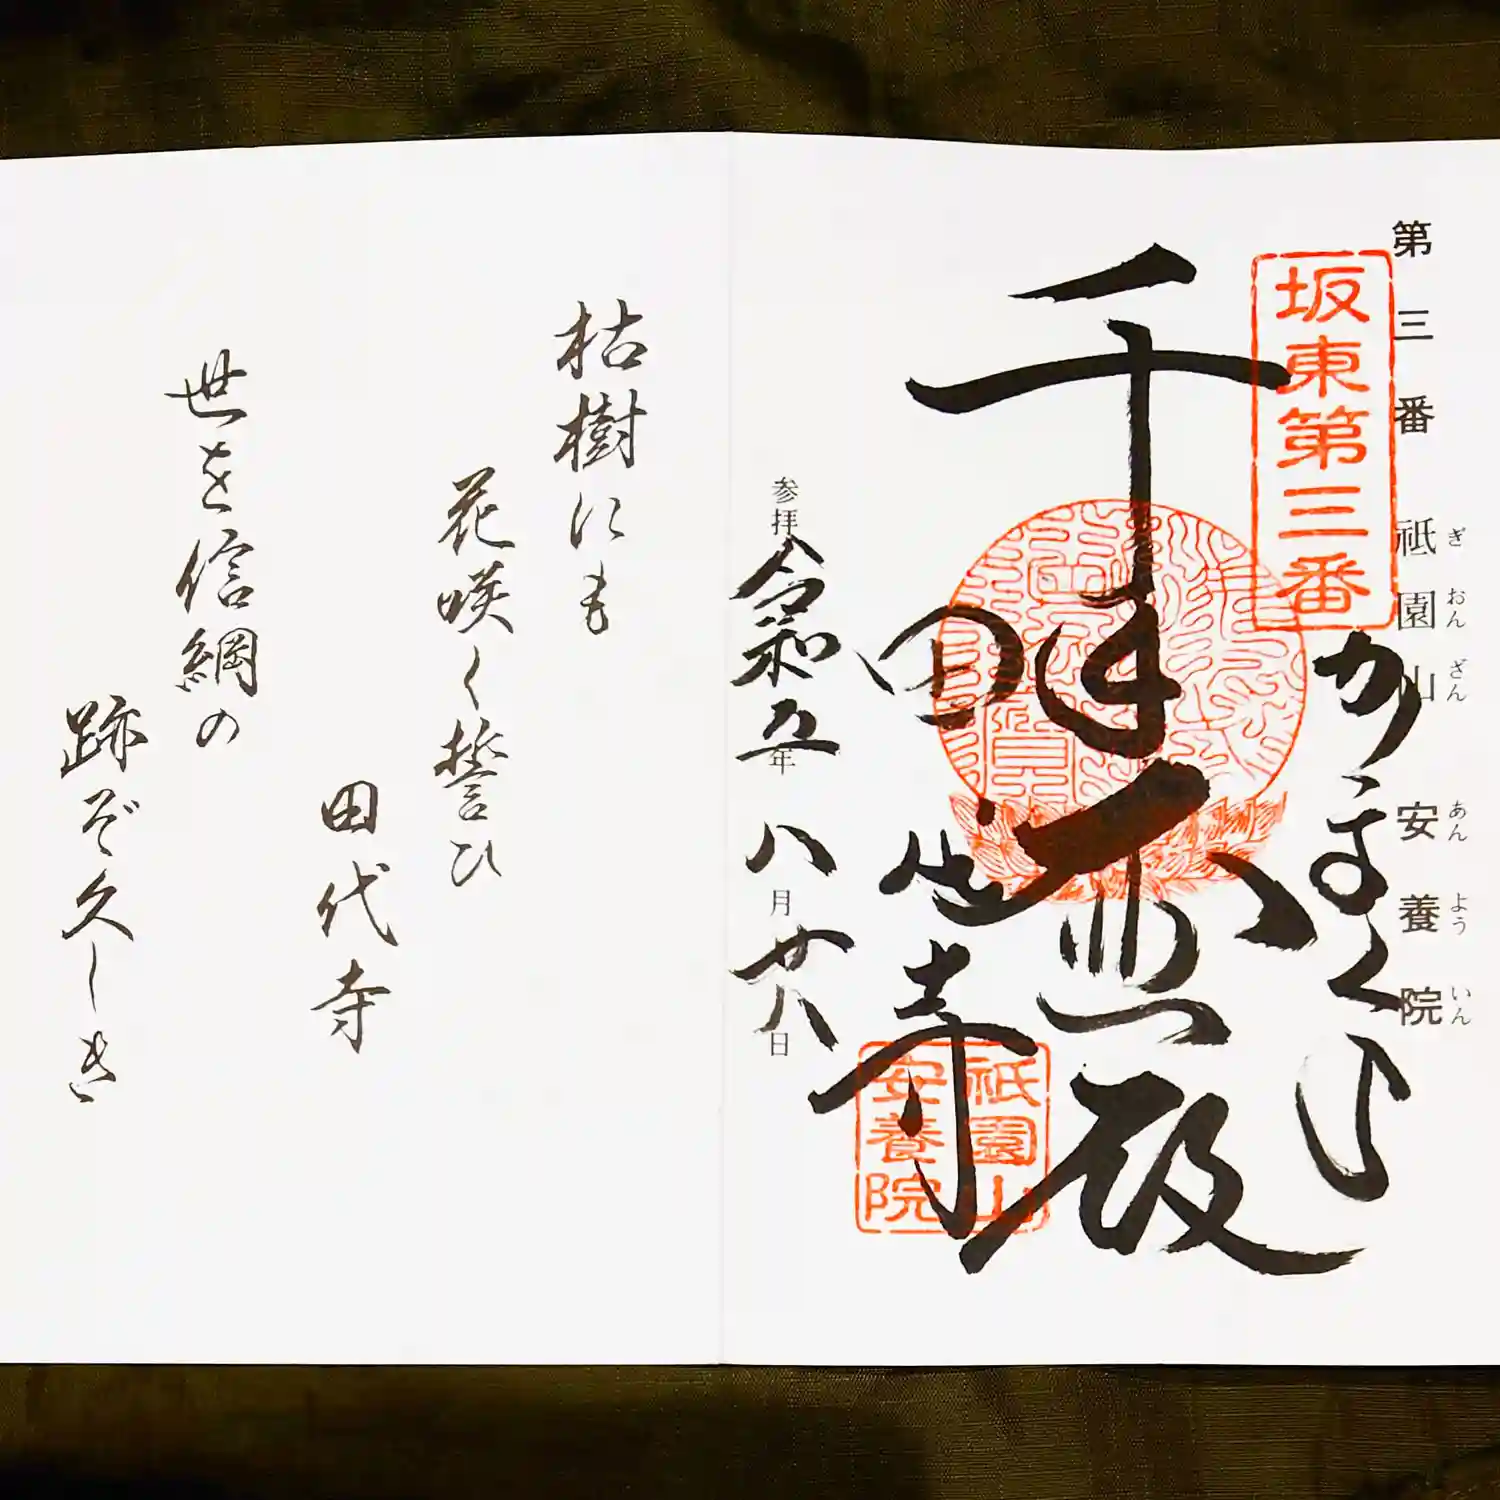 第三番 祇園山 安養院
ぎ おん ざん あん よう いん
坂東第三番
かまくら
千手大悲殿
田代寺
祇園山
安養院
参拝 令和五年 八月 廿八日
枯樹にも
花咲く誓ひ
田代寺
世を信綱の
跡ぞ久しき